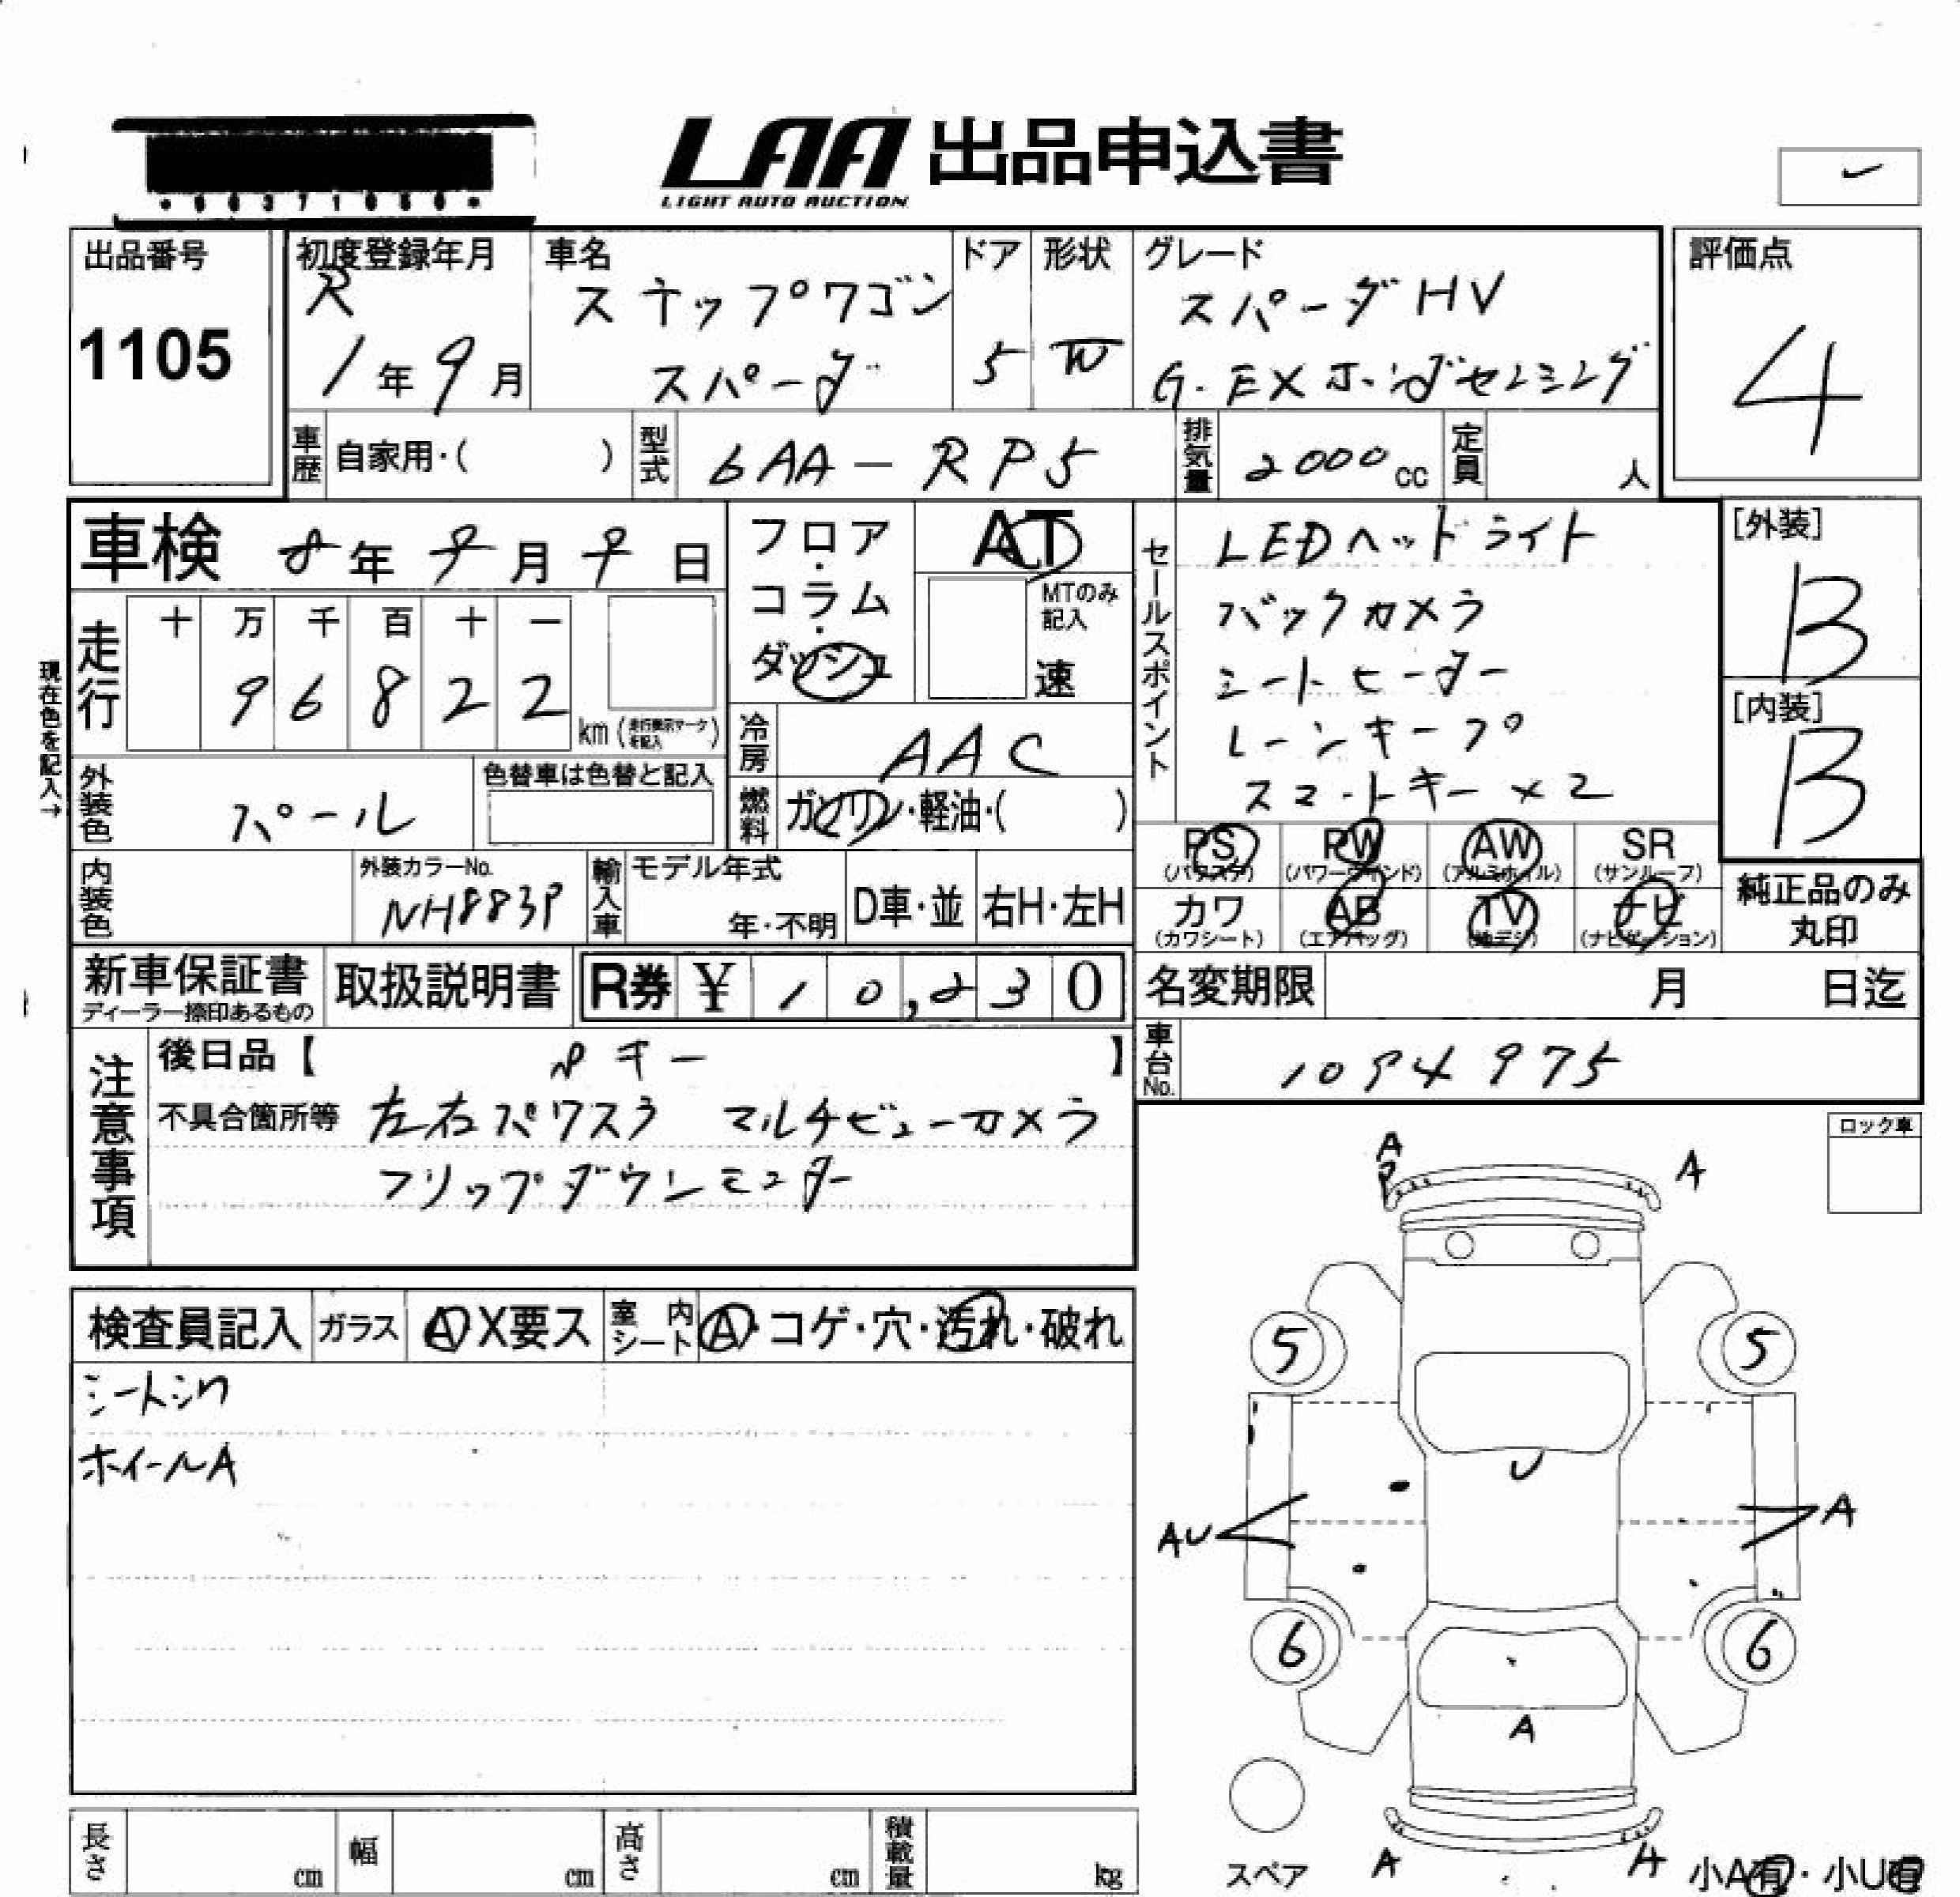 LAA 出品申込書
LIGHT AUTO AUCTION
出品番号
1105
初度登録年月
R
1年9月
車名
ステップワゴン
スパーダ
ドア
5
形状
W
グレード
スパーダHV
G.EXホンダセンシング
評価点
4
車歴 自家用・( )
型式 6AA-RP5
排気量 2000cc
定員 人
車検 8年9月9日
フロア・コラム・ダッシュ
AT
MTのみ記入
速
セールスポイント
LEDヘッドライト
バックカメラ
シートヒーター
レーンキープ
スマートキー×2
[外装]
B
[内装]
B
現在色を記入→
走行
十 万 千 百 十 一
9 6 8 2 2
km(走行表示マークを記入)
冷房 AAC
燃料 ガソリン・軽油・( )
外装色 パール
色替車は色替と記入
内装色
外装カラーNo.
NH883P
輸入車
モデル年式
年・不明
D車・並
右H・左H
PS (パワステ)
PW (パワーウインド)
AW (アルミホイル)
SR (サンルーフ)
カワ (カワシート)
AB (エアバッグ)
TV (地デジ)
ナビ (ナビゲーション)
純正品のみ
丸印
新車保証書
ディーラー捺印あるもの
取扱説明書
R券 ¥10,230
名変期限 月 日迄
車台No. 1094975
注意事項
後日品【 キー 】
不具合箇所等 左右パワスラ マルチビューカメラ
フリップダウンモニター
ロック車
検査員記入
ガラス A X要ス
室内シート A・コゲ・穴・汚れ・破れ
シートシワ
ホイールA
A
P
A
5
5
U
AU
A
6
6
A
A
A
スペア
小A有・小U有
長さ cm
幅 cm
高さ cm
積載量 kg